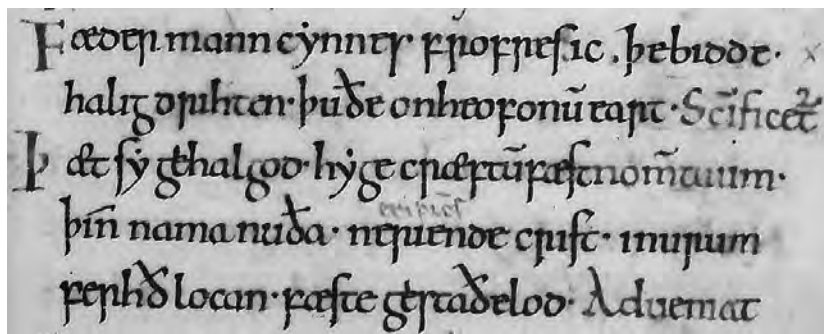 Fæder mann cẏnnes frofres ic . þe bidde ·
halig drihten · þu ðe on heofonū eart · Sc̄ificet̄
Þæt sẏ gehalgod · hẏge cræftū fæst nom̄ tuum ·
þin nama nu ða · neriende crist · in urum
ferhð locan · fæste gestaðelod · Adueniat